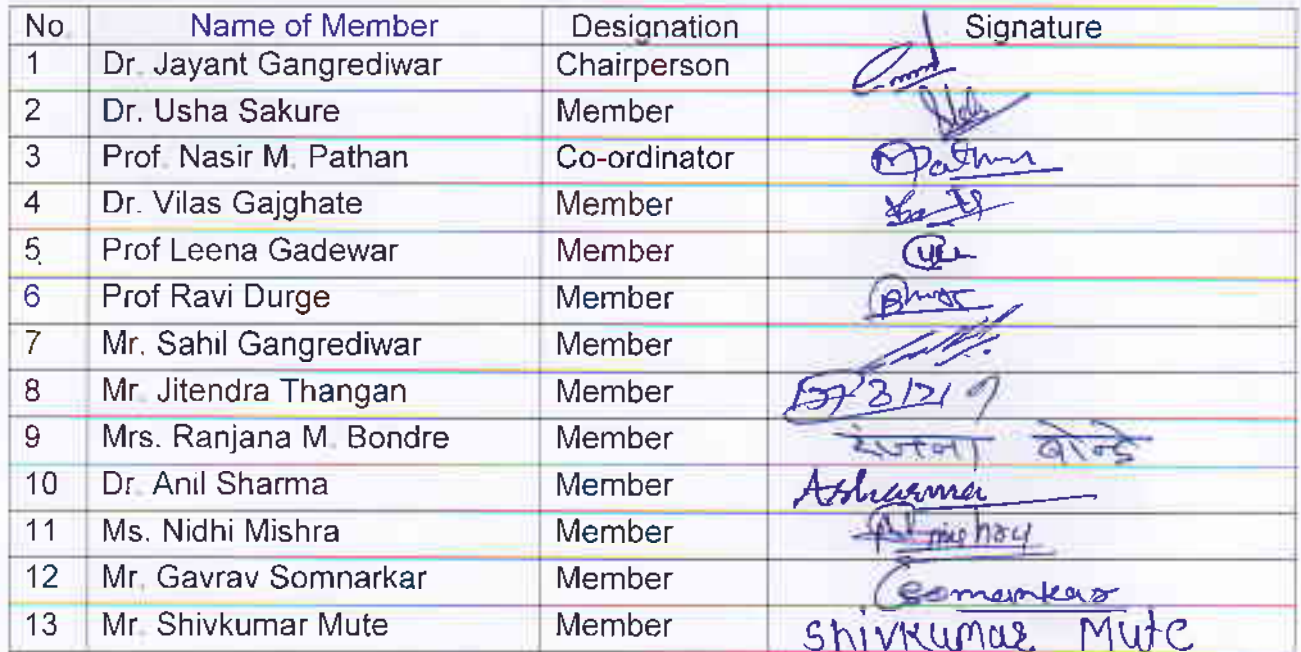 No. Name of Member Designation Signature
1 Dr. Jayant Gangrediwar Chairperson
2 Dr. Usha Sakure Member
3 Prof. Nasir M. Pathan Co-ordinator Pathan
4 Dr. Vilas Gajghate Member
5 Prof Leena Gadewar Member
6 Prof Ravi Durge Member
7 Mr. Sahil Gangrediwar Member
8 Mr. Jitendra Thangan Member
9 Mrs. Ranjana M. Bondre Member रंजना बोन्द्रे
10 Dr. Anil Sharma Member Asharma
11 Ms. Nidhi Mishra Member
12 Mr. Gavrav Somnarkar Member
13 Mr. Shivkumar Mute Member Shivkumar Mute